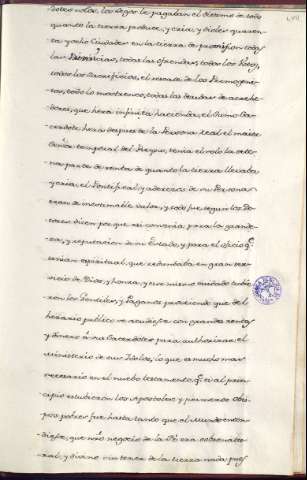 dotes solos, los legos le pagaban el diezmo de todo
quanto la tierra produce, y cria, y dioles quaren-
ta y ocho Ciudades en la tierra de promission todas
las Primicias, todas las ofrendas, todos los votos,
todos los Sacrificios, el rescate de los Primogeni-
tos, todo lo mostrenco, todas las deudas de acrehe-
dores, que hera infinita hacienda, el Sumo Sa-
cerdote hera despues de la Persona Real el maior
Señor temporal del Reyno, tenia el solo la
parte de rentas de quanto la tierra llevaba
y criaba, el Pontifical, y aderezos de su Persona
eran de inextimable valor, y todo fue segun los Do-
tores dicen por que asi convenia para la grande-
za, y reputacion de su Estado, y para el oficio q.e
tenian espiritual, que redundaba en gran ser-
vicio de Dios, y honra, y por mismo cuidado tubie-
ron los Gentiles, y Paganos proveiendo que del
herario publico se acudiese con grandes rentas
y dinero à sus Sacerdotes para authorizar el
Ministerio de sus Idolos, lo que es mucho mas
necesario en el nuebo testamento, q.e si al prin-
cipio estubieron los Apostoles y primeros Obis-
pos pobres fue hasta tanto que el Mundo enten-
diese, que este negocio de la Fè era sobrenatu-
ral, y divino sin tener de la tierra nada, pues